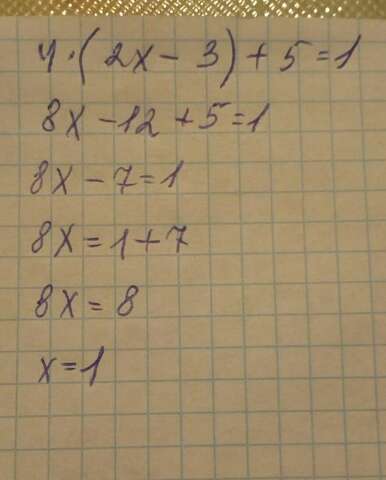 4·(2x-3)+5=1
8x-12+5=1
8x-7=1
8x=1+7
8x=8
x=1